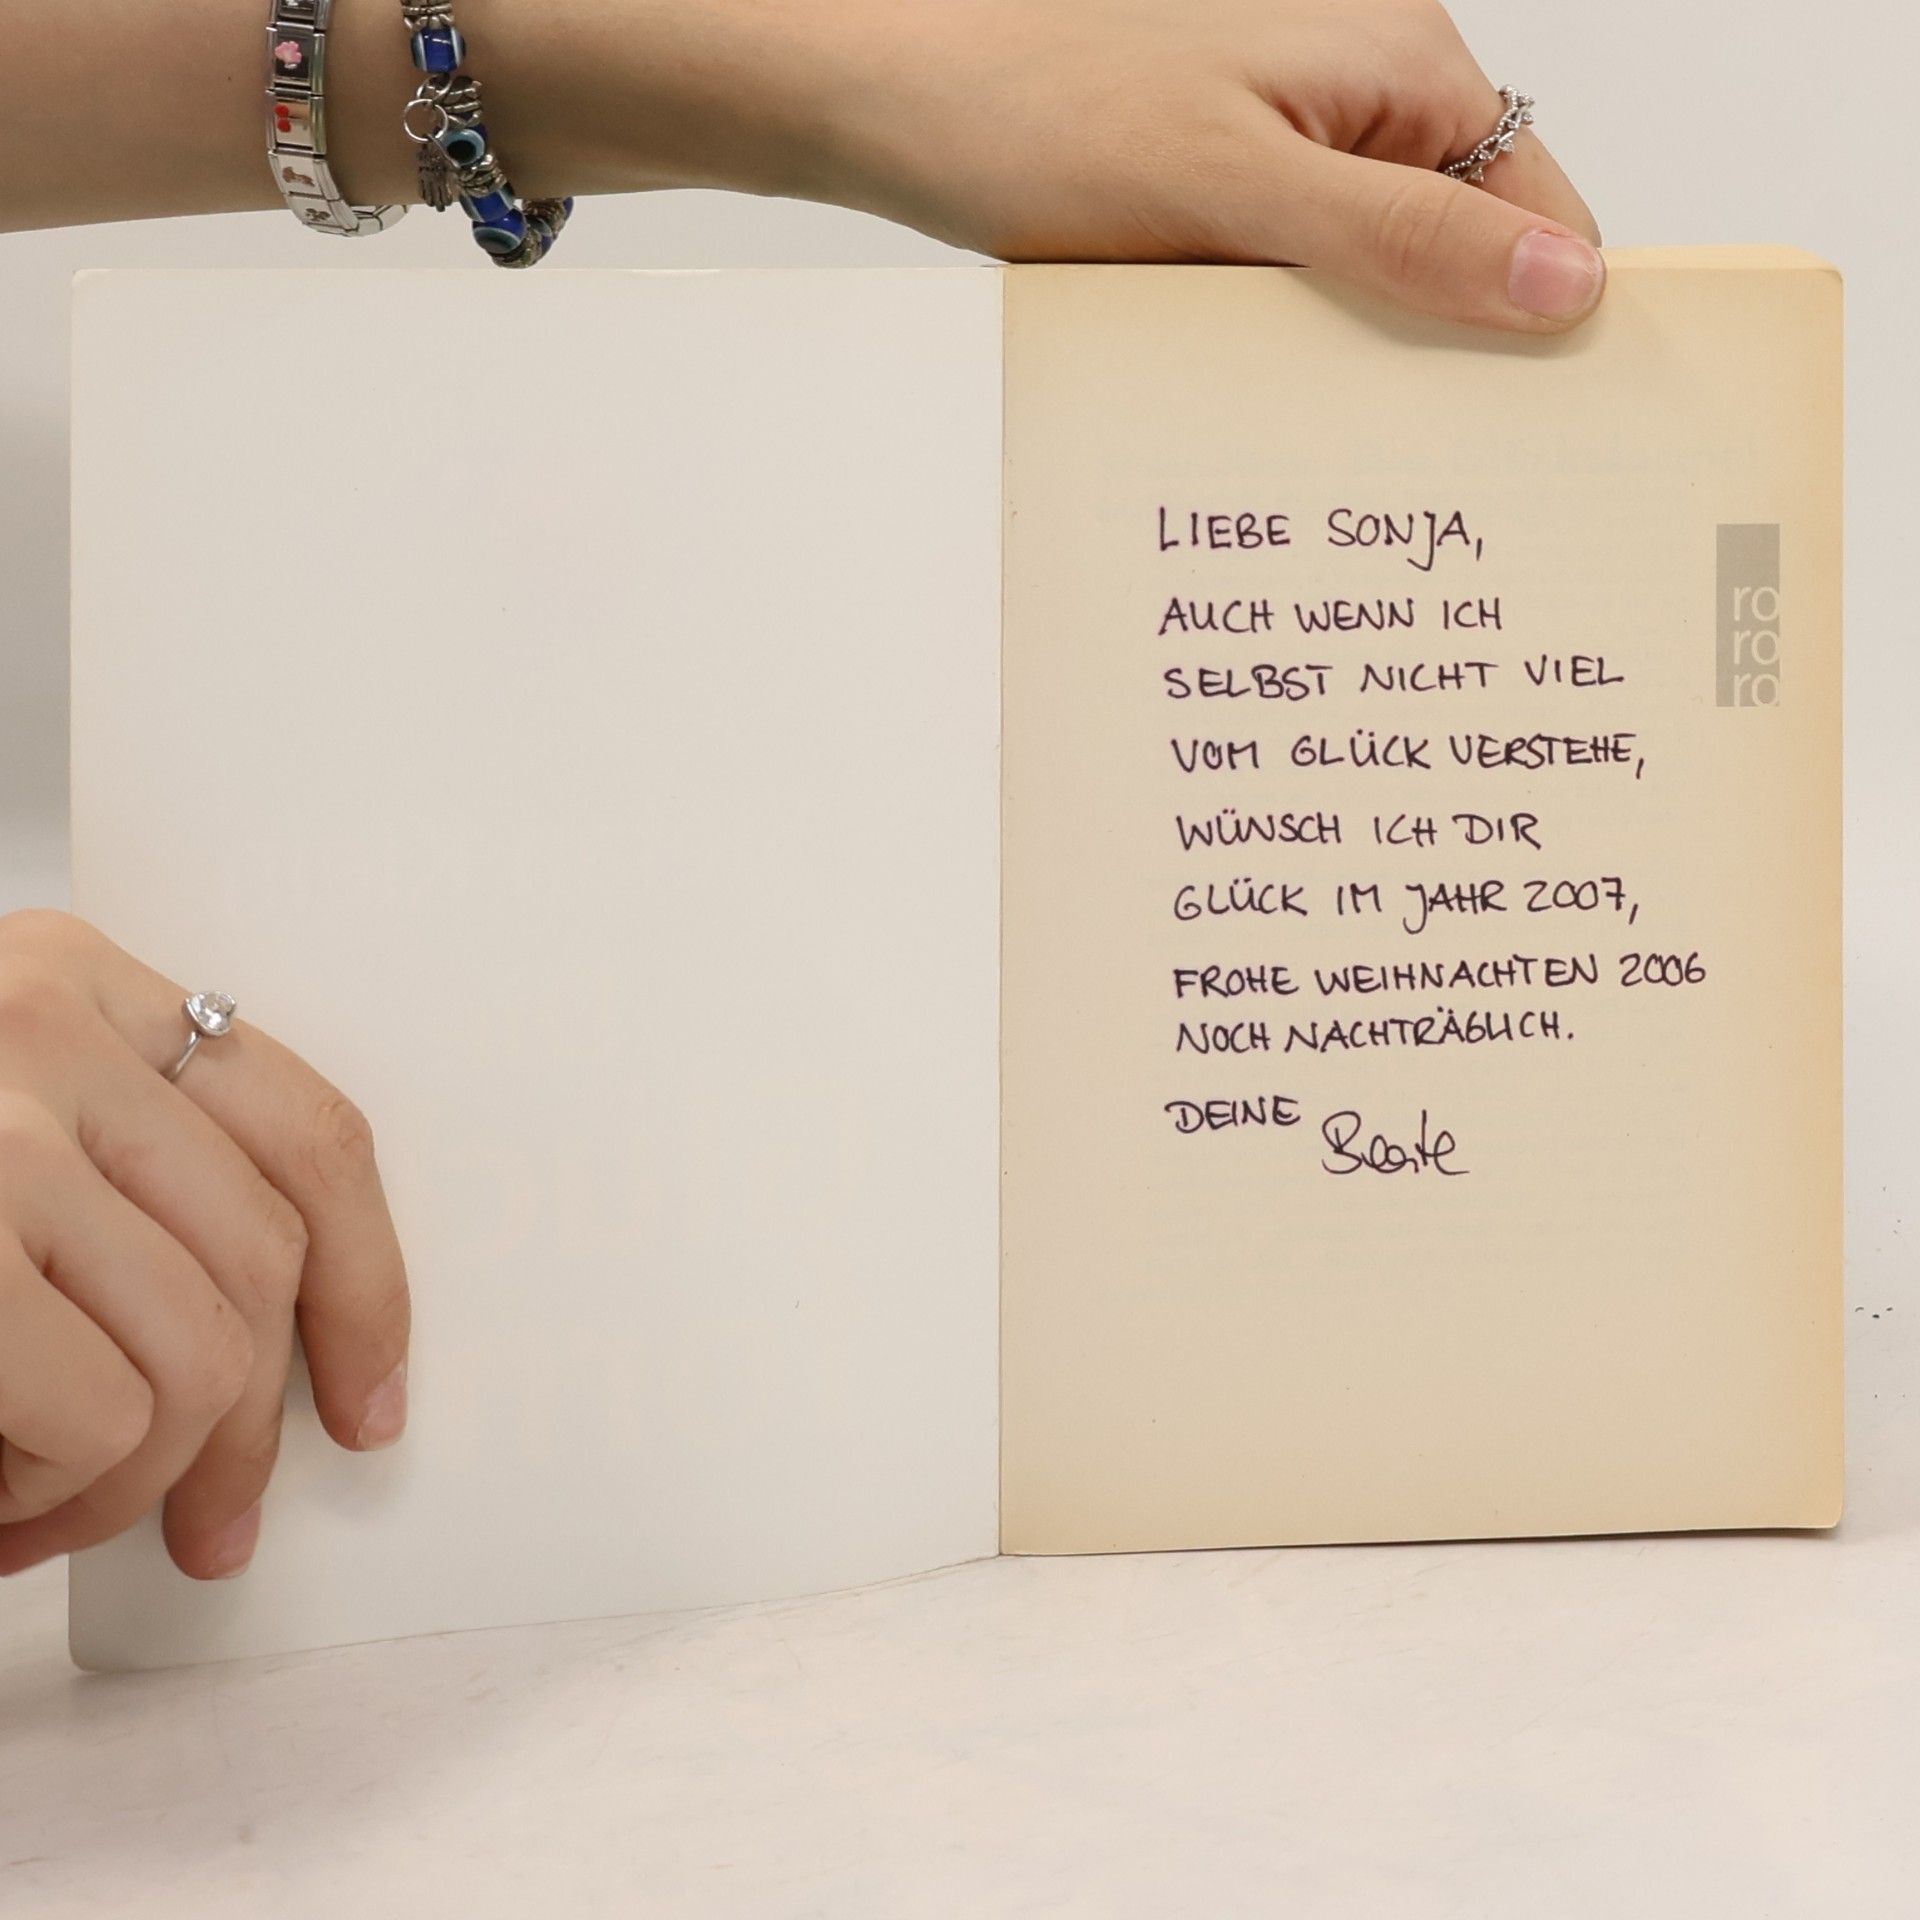 LIEBE SONJA,
AUCH WENN ICH
SELBST NICHT VIEL
VOM GLÜCK VERSTEHE,
WÜNSCH ICH DIR
GLÜCK IM JAHR 2007,
FROHE WEIHNACHTEN 2006
NOCH NACHTRÄGLICH.
DEINE Beate
ro
ro
ro